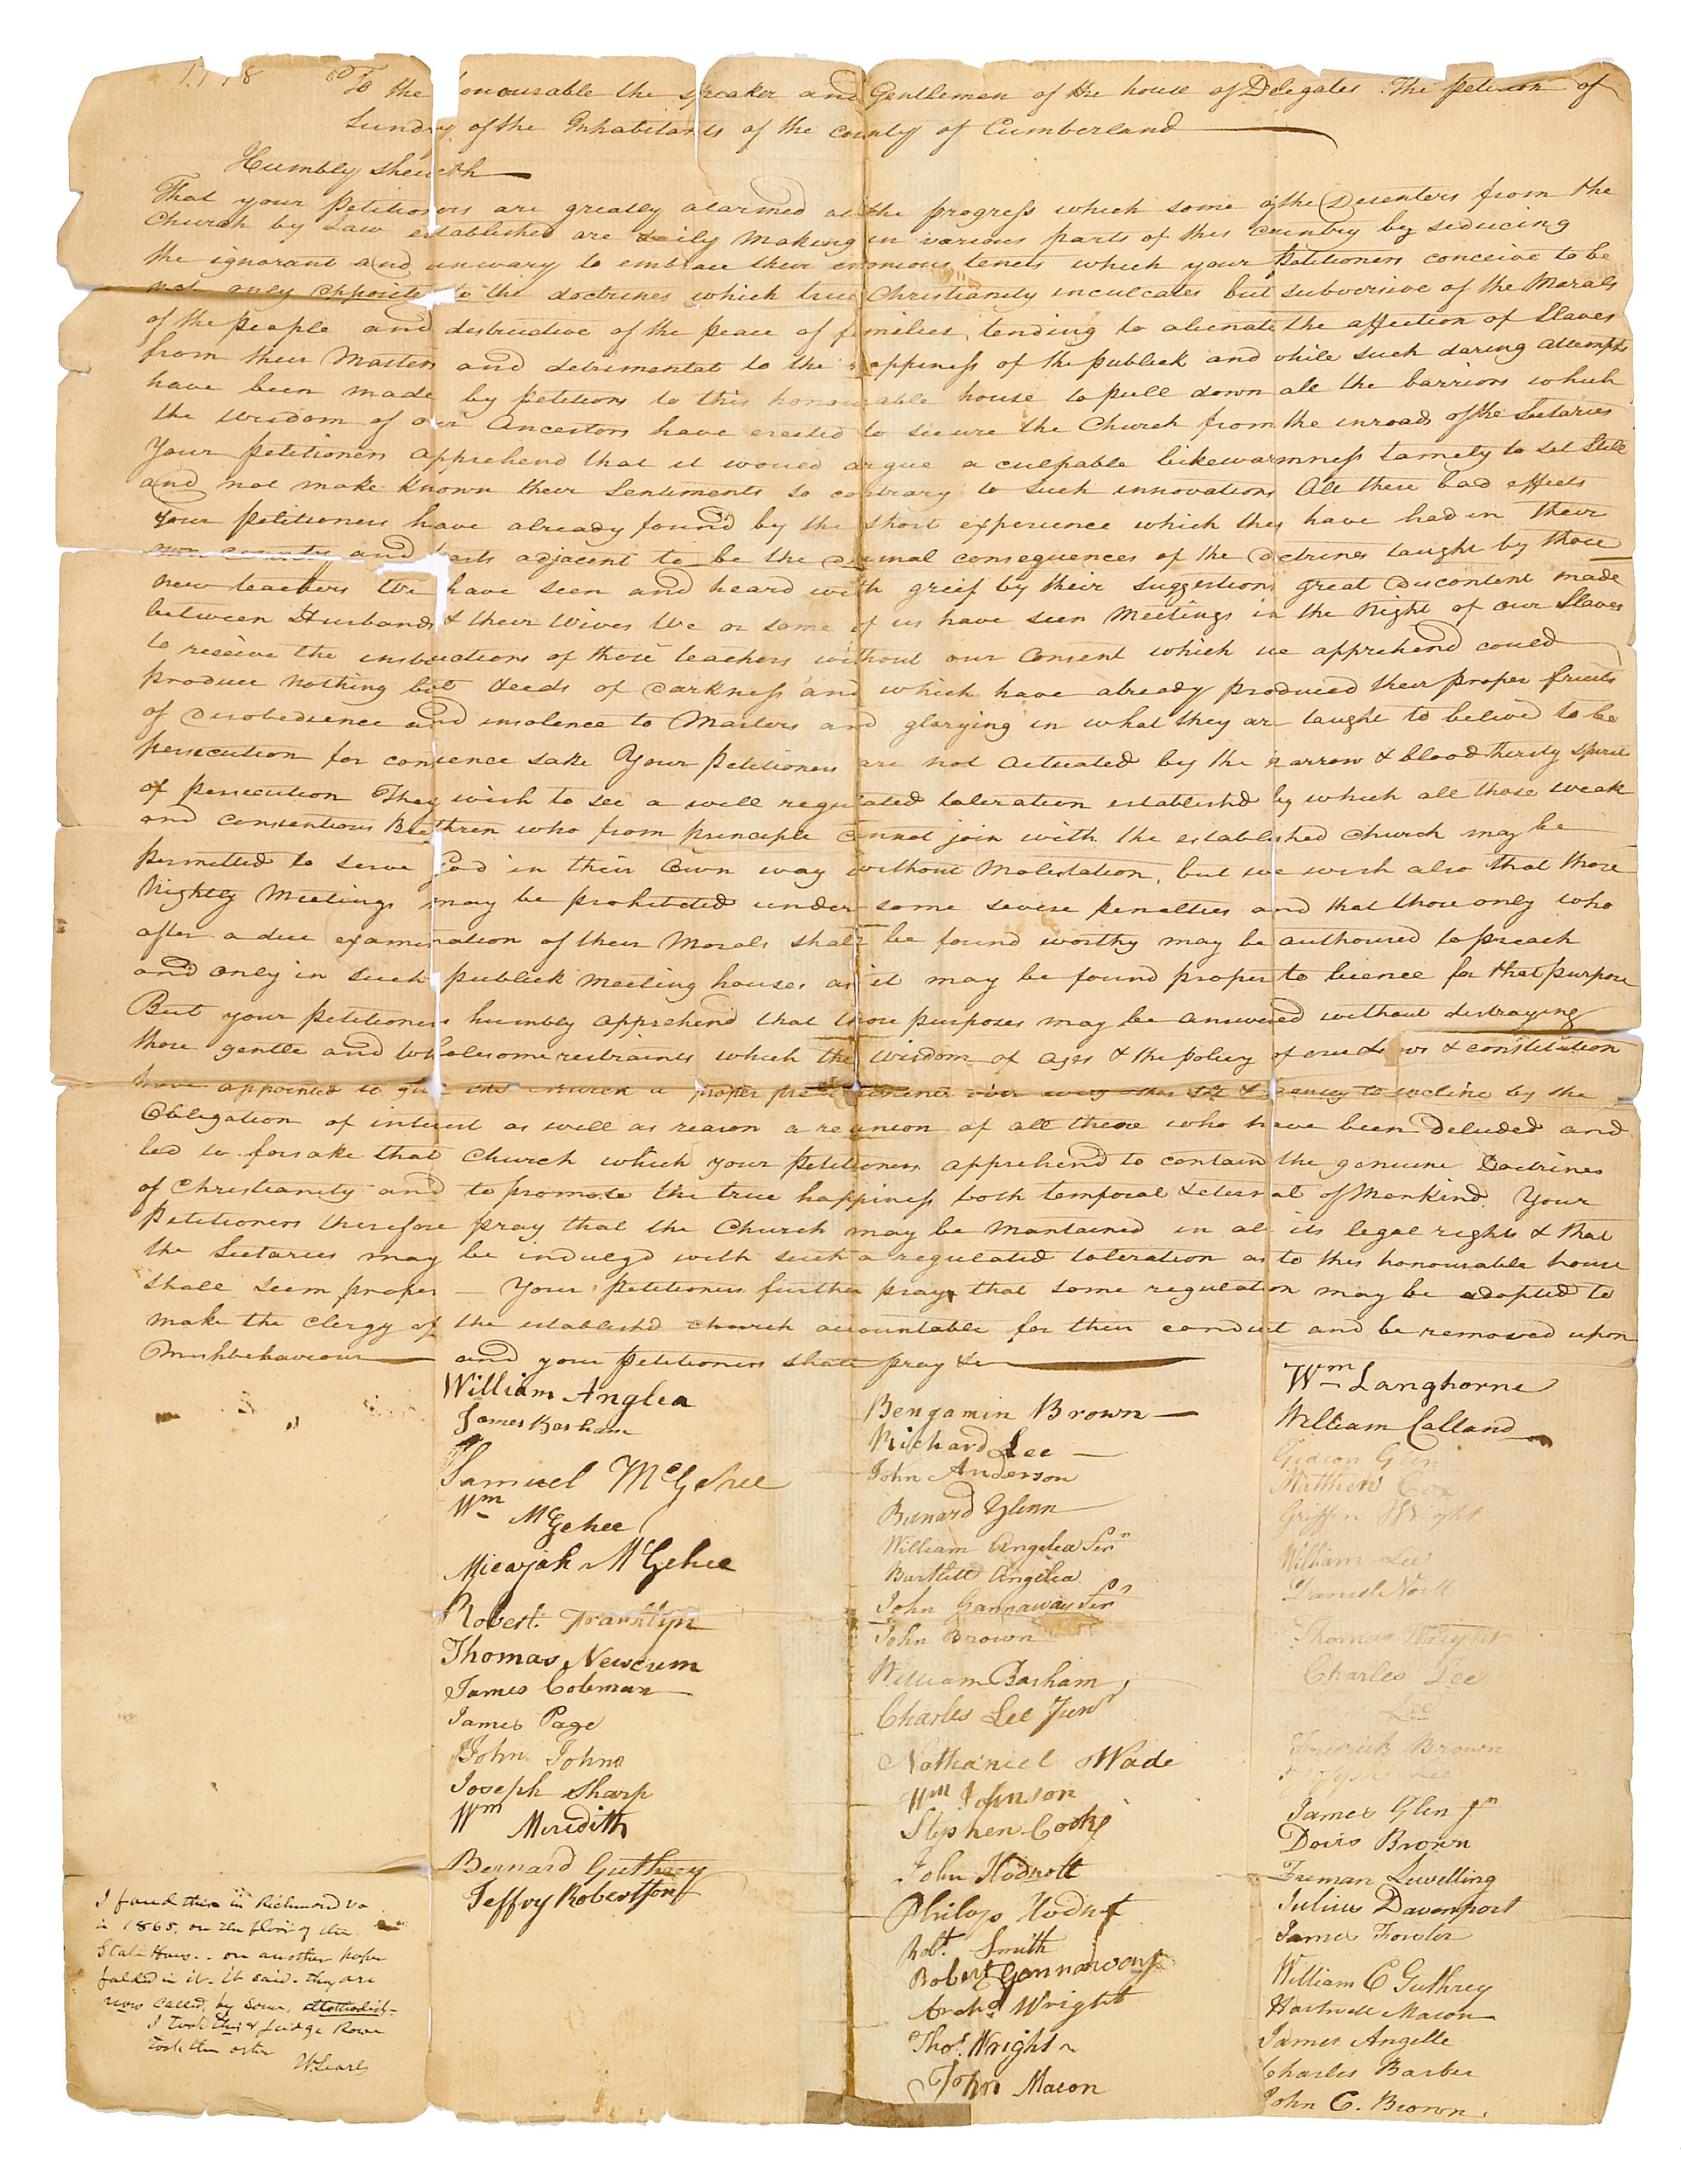 To the honourable the speaker and Gentlemen of the house of Delegates The petition of
Sundry of the Inhabitants of the county of Cumberland
Humbly sheweth
That your Petitioners are greatly alarmed at the progress which some of the Desenters from the
Church by Law established are daily making in various parts of this Country by seducing
the ignorant and unwary to embrace their tenets which your Petitioners conceive to be
not only opposite to the doctrines which true Christianity inculcates but subversive of the Morals
of the people and destructive of the peace of families, tending to alienate the affection of Slaves
from their Masters and detrimental to the happiness of the publick and while such daring attempts
have been made by petitions to this honourable house to pull down all the barriors which
the wisdom of our Ancestors have erected to secure the Church from the inroads of the Sectaries
Your petitioners apprehend that it would argue a culpable likewarmness tamely to set Still
and not make known their Sentiments so contrary to such innovations All these bad effects
Your petitioners have already found by the short experience which they have had in their
own county and parts adjacent to be the dismal consequences of the doctrines taught by those
new teachers We have seen and heard with greif by their suggestions great discontent made
between Husbands & their Wives We or some of us have seen Meetings in the Night of our Slaves
to receive the instructions of those teachers without our Consent which we apprehend could
produce nothing but deeds of darkness and which have already produced their proper fruits
of disobedience and insolence to Masters and glorying in what they are taught to believe to be
persecution for consence sake Your Petitioners are not actuated by the narrow & bloodthirsty spirit
of persecution They wish to see a well regulated toleration established by which all those weak
and consentious Brethren who from principle cannot join with the established church may be
permitted to serve God in their own way without Molestation, but we wish also that those
Nightly Meetings may be prohibited under some severe penalties and that those only who
after a due examination of their Morals shall be found worthy may be authorised to preach
and only in such publick meeting houses as it may be found proper to licence for that purpose
But your petitioners humbly apprehend that those purposes may be answered without distroying
those gentle and wholesome restraints which the wisdom of ages & the policy of our Laws & constitution
have appointed to give the church a proper over every other to incline by the
Obligation of interest as well as reason a reunion of all those who have been deluded and
led to forsake that Church which your petitioners apprehend to contain the genuine Doctrines
of Christianity and to promote the true happiness both temporal & eternal of Mankind. Your
Petitioners therefore pray that the Church may be mantained in all its legal rights & that
the Sectaries may be indulgd with such a regulated toleration as to this honourable house
shall seem proper — Your Petitioners further pray that some regulation may be adopted to
make the clergy of the establishd church accountable for their conduct and be removed upon
Mishbehaviour and your petitioners shall pray &c
William Anglea
James Basham
Samuel McGehee
Wm McGehee
Micajah McGehee
Robert Franklyn
Thomas Newcum
James Coleman
James Page
John Johns
Joseph Sharp
Wm Meredith
Bernard Guthrey
Jeffry Robertson
Bengamin Brown
Richard Lee
John Anderson
Bernard Glenn
William Angelea Senr
Bartlett Angelea
John Gannaway Senr
John Brown
William Basham
Charles Lee Junr
Nathaniel Wade
Wm Johnson
Stephen Cooke
John Hodnett
Philop Hodnet
Robt. Smith
Robert Gannaway
Archd Wright
Thos. Wright
John Mason
Wm Langhorne
William Calland
Gideon Glen
Matthew Cox
Griffin Wright
William Lee
Daniel Noell
Thomas Wright
Charles Lee
Lee
Fredrick Brown
Lee
James Glen Jn
Davis Brown
Freman Lewelling
Julius Davenport
James Fowler
William C Guthrey
Hartwell Mason
James Angelle
Charles Barber
John C. Brown
I found this in Richmond Va
in 1865, on the floor of the
State House.. on another paper
folded in it - it said. they are
now called, by some, Methodist-
I took this & Judge Rowe
took the other
W. Searls